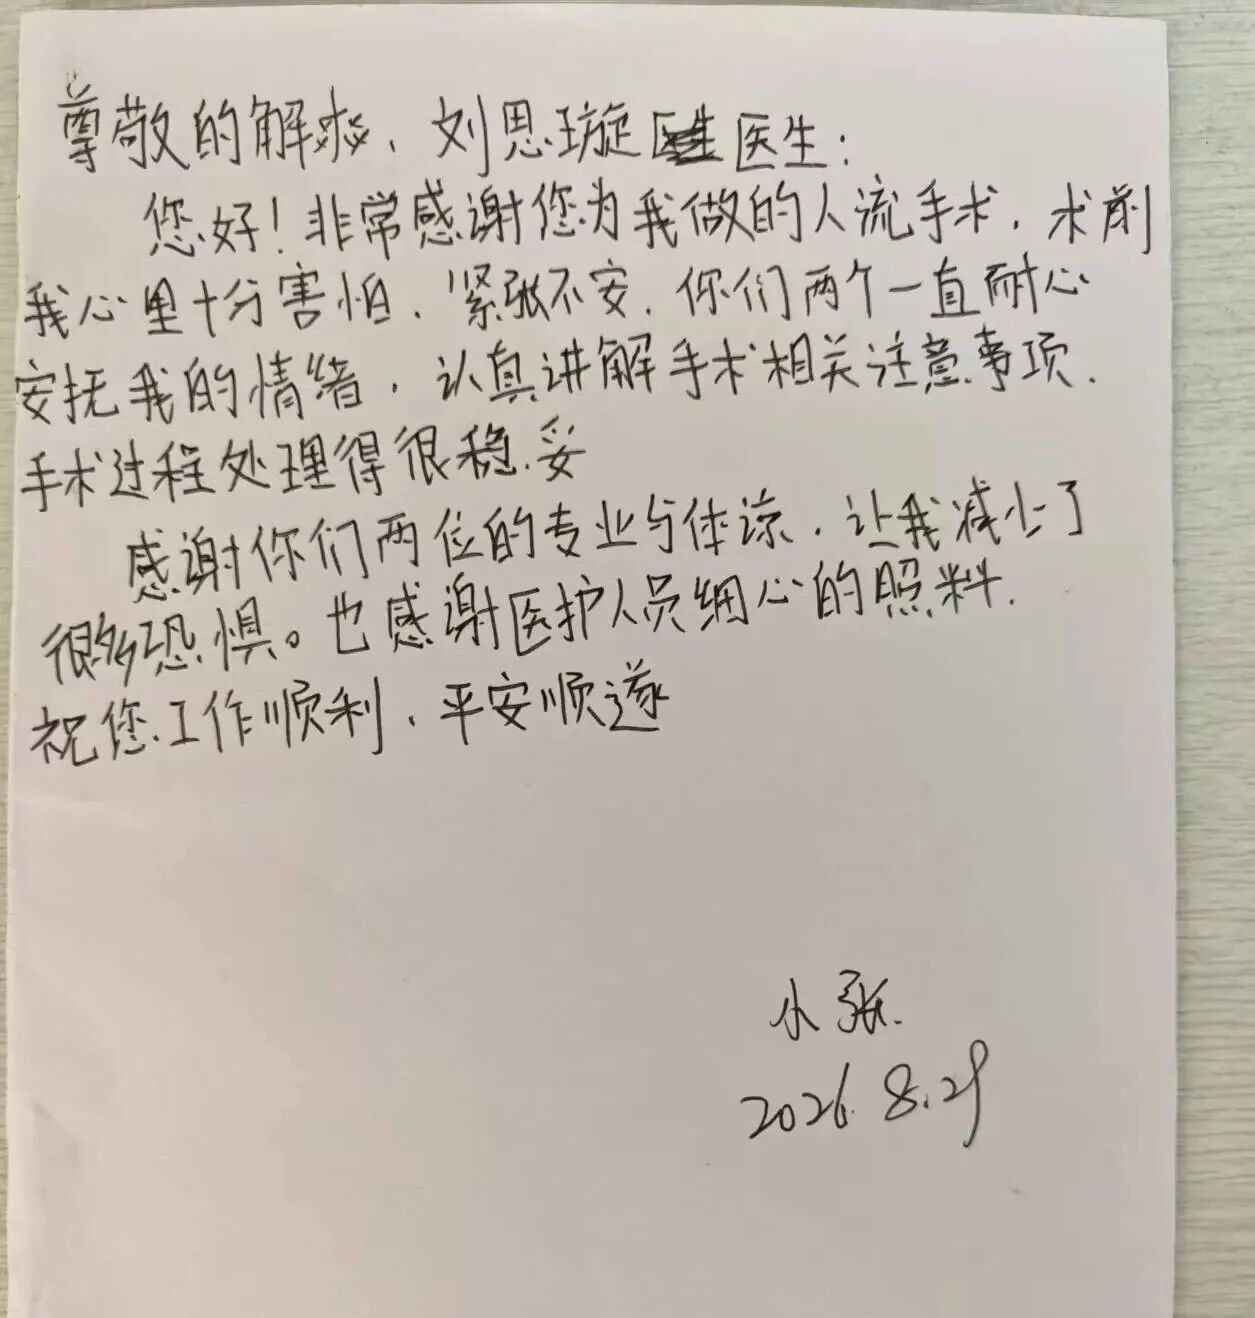 尊敬的解、刘思璇医生:
您好!非常感谢您为我做的人流手术,术前
我心里十分害怕、紧张不安,你们两个一直耐心
安抚我的情绪,认真讲解手术相关注意事项.
手术过程处理得很稳妥
感谢你们两位的专业与体谅,让我减少了
很多恐惧。也感谢医护人员细心的照料.
祝您工作顺利,平安顺遂
小张.
2026.8.29